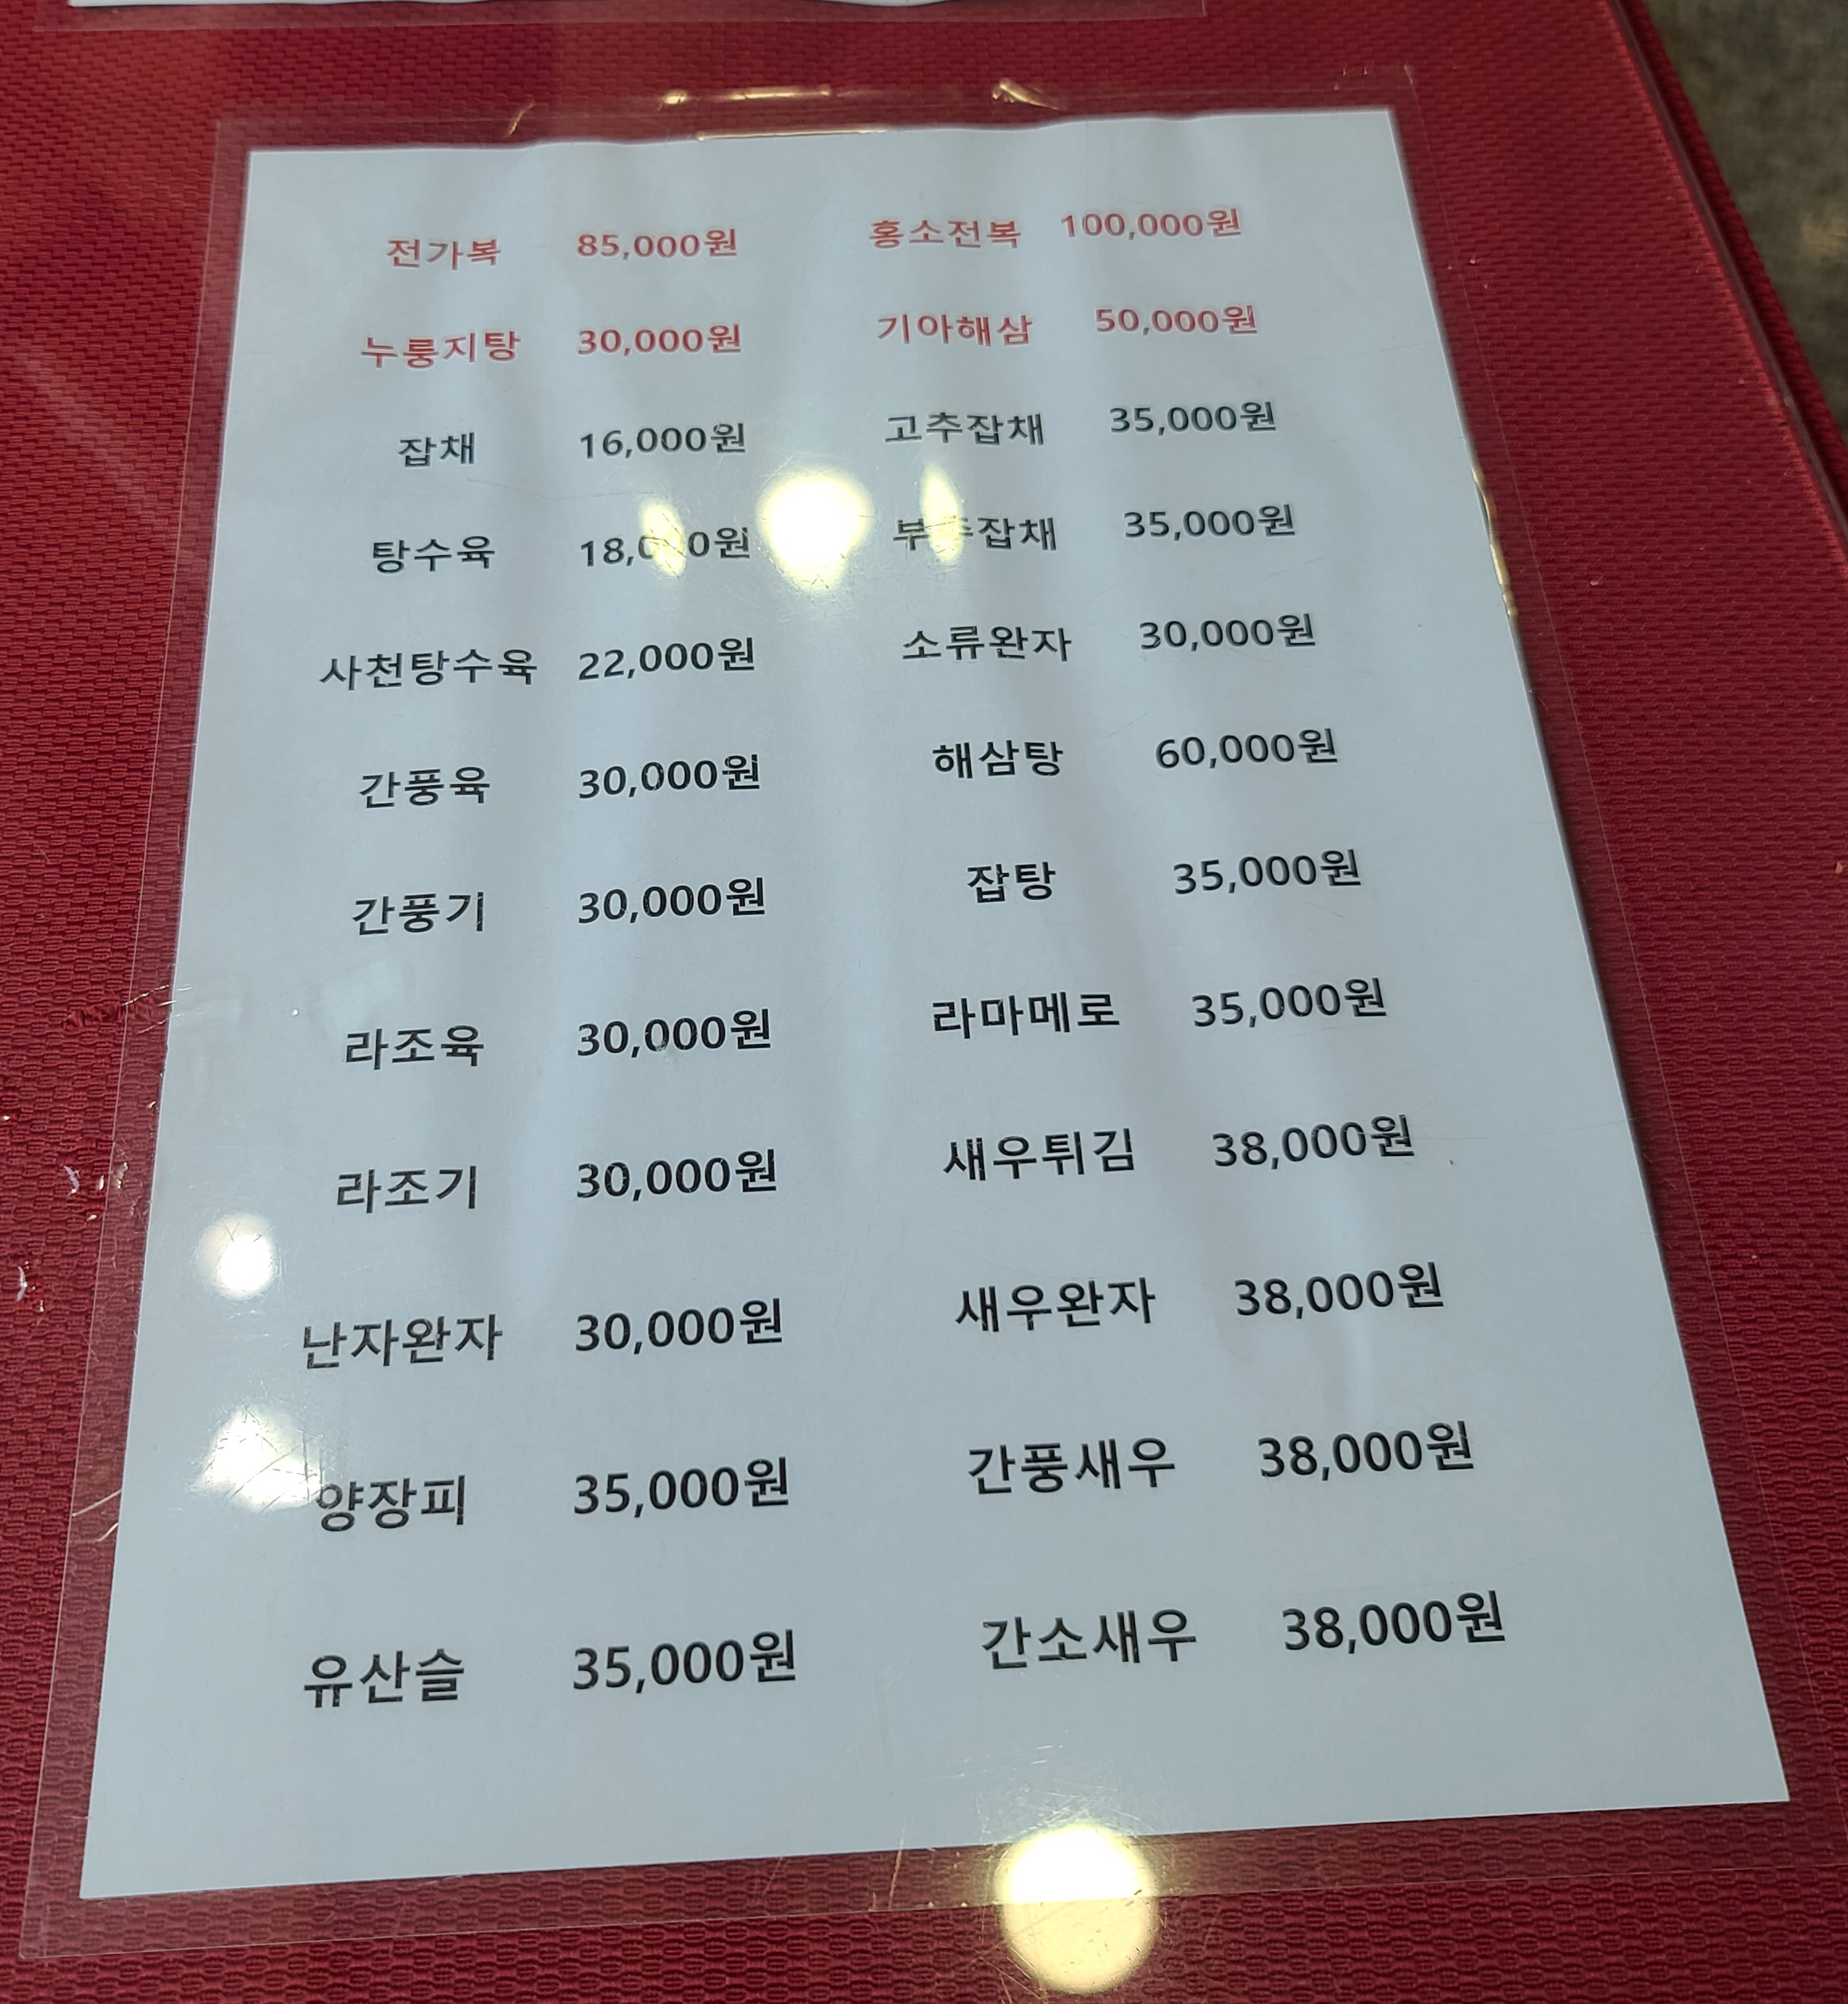 전가복 85,000원 홍소전복 100,000원
누룽지탕 30,000원 기아해삼 50,000원
잡채 16,000원 고추잡채 35,000원
탕수육 부추잡채 35,000원
사천탕수육 22,000원 소류완자 30,000원
간풍육 30,000원 해삼탕 60,000원
간풍기 30,000원 잡탕 35,000원
라조육 30,000원 라마메로 35,000원
라조기 30,000원 새우튀김 38,000원
난자완자 30,000원 새우완자 38,000원
양장피 35,000원 간풍새우 38,000원
유산슬 35,000원 간소새우 38,000원